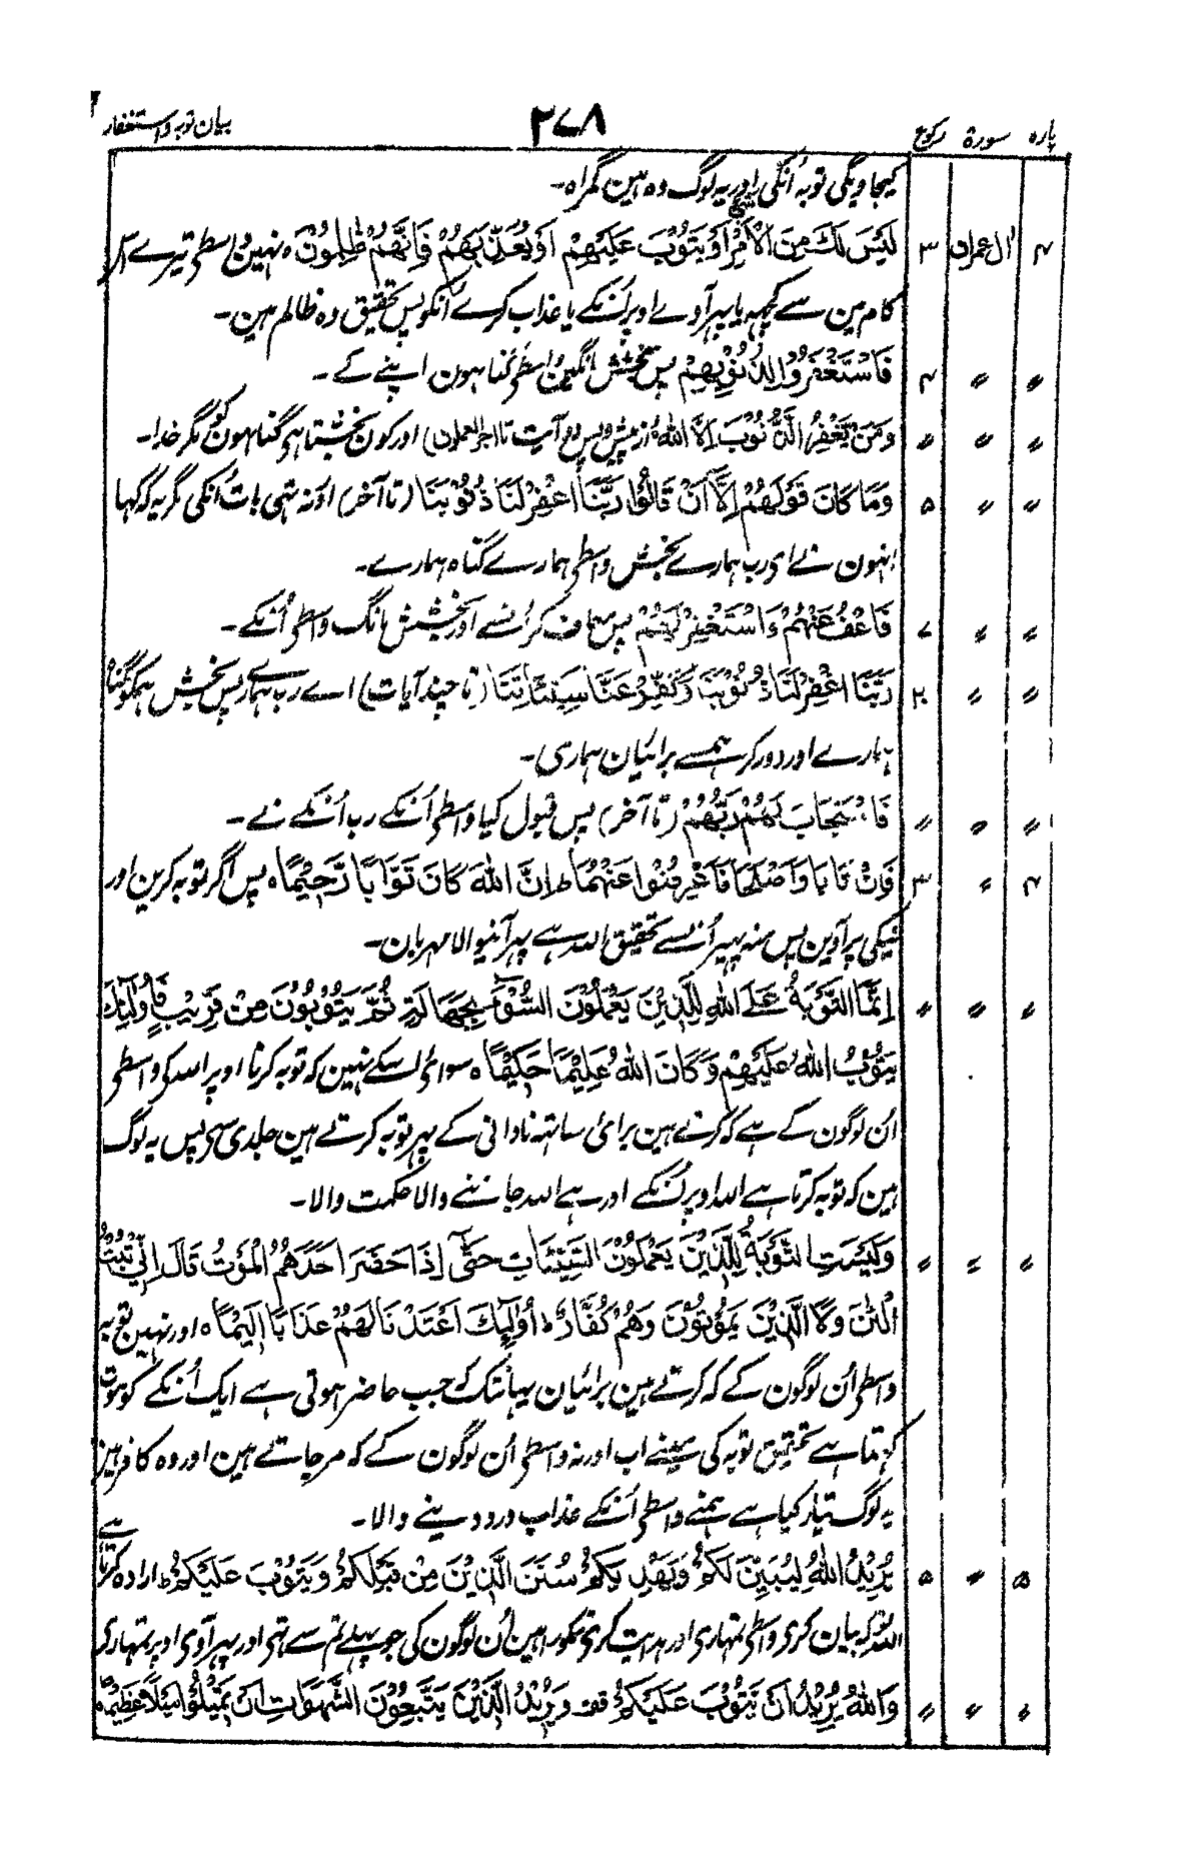 پارہ سورۃ رکوع ۲۷۸ بیان توبہ و استغفار
کیجاویگی توبہ اُنکی اور یہ لوگ وہ ہین گمراہ۔
۴ اٰل عمران ۳ لَیْسَ لَكَ مِنَ الْاَمْرِ اَوْ یَتُوْبَ عَلَیْهِمْ اَوْ یُعَذِّبَهُمْ فَاِنَّهُمْ ظٰلِمُوْنَ ہ نہین واسطی تیرے اس
کام مین سے کچہہ یا پہر آوے اوپر اُنکے یا عذاب کرے اُنکو پس تحقیق وہ ظالم ہین۔
〃 〃 ۴ فَاسْتَغْفَرُوْا لِذُنُوْبِهِمْ پس بخشش مانگین واسطی گناہون اپنے کے۔
〃 〃 〃 وَمَنْ یَّغْفِرُ الذُّنُوْبَ اِلَّا اللّٰهُ (از پیش و پس دو آیت تا اجر العملون) اور کون بخشتا ہی گناہون کو مگر خدا۔
〃 〃 ۵ وَمَا كَانَ قَوْلَهُمْ اِلَّا اَنْ قَالُوْا رَبَّنَا اغْفِرْ لَنَا ذُنُوْبَنَا (تا آخر) اور نہ تہی بات اُنکی مگر یہ کہ کہا
انہون نے ای رب ہمارے بخش واسطی ہمارے گناہ ہمارے۔
〃 〃 ۷ فَاعْفُ عَنْهُمْ وَاسْتَغْفِرْ لَهُمْ پس معاف کر اُنسے اور بخشش مانگ واسطی اُنکے۔
〃 〃 ۲ رَبَّنَا اغْفِرْ لَنَا ذُنُوْبَنَا وَكَفِّرْ عَنَّا سَیِّئَاٰتِنَا (تا چند آیات) اے رب ہمارے پس بخش ہمکو گناہ
ہمارے اور دور کر ہمسے برائیان ہماری۔
〃 〃 〃 فَاسْتَجَابَ لَهُمْ رَبُّهُمْ (تا آخر) پس قبول کیا واسطی اُنکے رب اُنکے نے۔
۴ 〃 ۳ فَاِنْ تَابَا وَاَصْلَحَا فَاَعْرِضُوْا عَنْهُمَا ط اِنَّ اللّٰهَ كَانَ تَوَّابًا رَّحِیْمًا ہ پس اگر توبہ کرین اور
نیکی پر آوین پس منہ پہیر اُنسے تحقیق اللہ ہے پہر آنیوالا مہربان۔
〃 〃 〃 اِنَّمَا التَّوْبَةُ عَلَی اللّٰهِ لِلَّذِیْنَ یَعْمَلُوْنَ السُّوْٓءَ بِجَهَالَةٍ ثُمَّ یَتُوْبُوْنَ مِنْ قَرِیْبٍ فَاُولٰٓئِكَ
یَتُوْبُ اللّٰهُ عَلَیْهِمْ وَكَانَ اللّٰهُ عَلِیْمًا حَكِیْمًا ہ سوائے اسکے نہین کہ توبہ کرنا اوپر اللہ کی واسطی
اُن لوگون کے ہے کہ کرتے ہین برائی ساتہہ نادانی کے پہر توبہ کرتے ہین جلدی سی پس یہ لوگ
ہین کہ توبہ کرتا ہے اللہ اوپر اُنکے اور ہے اللہ جاننے والا حکمت والا۔
〃 〃 〃 وَلَیْسَتِ التَّوْبَةُ لِلَّذِیْنَ یَعْمَلُوْنَ السَّیِّئَاتِ حَتّٰۤی اِذَا حَضَرَ اَحَدَهُمُ الْمَوْتُ قَالَ اِنِّیْ تُبْتُ
الْئٰنَ وَلَا الَّذِیْنَ یَمُوْتُوْنَ وَهُمْ كُفَّارٌ ط اُولٰٓئِكَ اَعْتَدْنَا لَهُمْ عَذَابًا اَلِیْمًا ہ اور نہین توبہ
واسطی اُن لوگون کے کہ کرتے ہین برائیان یہانتک کہ جب حاضر ہوتی ہے ایک اُنکے کو موت
کہتا ہے تحقیق توبہ کی مینے اب اور نہ واسطی اُن لوگون کے کہ مر جاتے ہین اور وہ کافر ہین
یہ لوگ تیار کیا ہے ہمنے واسطی اُنکے عذاب درد دینے والا۔
۵ 〃 ۵ یُرِیْدُ اللّٰهُ لِیُبَیِّنَ لَكُمْ وَیَهْدِیَكُمْ سُنَنَ الَّذِیْنَ مِنْ قَبْلِكُمْ وَیَتُوْبَ عَلَیْكُمْ ط ارادہ کرتا ہے
اللہ کہ بیان کری واسطی تمہاری اور ہدایت کری تمکو راہین اُن لوگون کی جو پہلے تم سے تہی اور پہر آوی اوپر تمہاری
〃 〃 〃 وَاللّٰهُ یُرِیْدُ اَنْ یَّتُوْبَ عَلَیْكُمْ قف وَیُرِیْدُ الَّذِیْنَ یَتَّبِعُوْنَ الشَّهَوَاتِ اَنْ تَمِیْلُوْا مَیْلًا عَظِیْمًا ہ